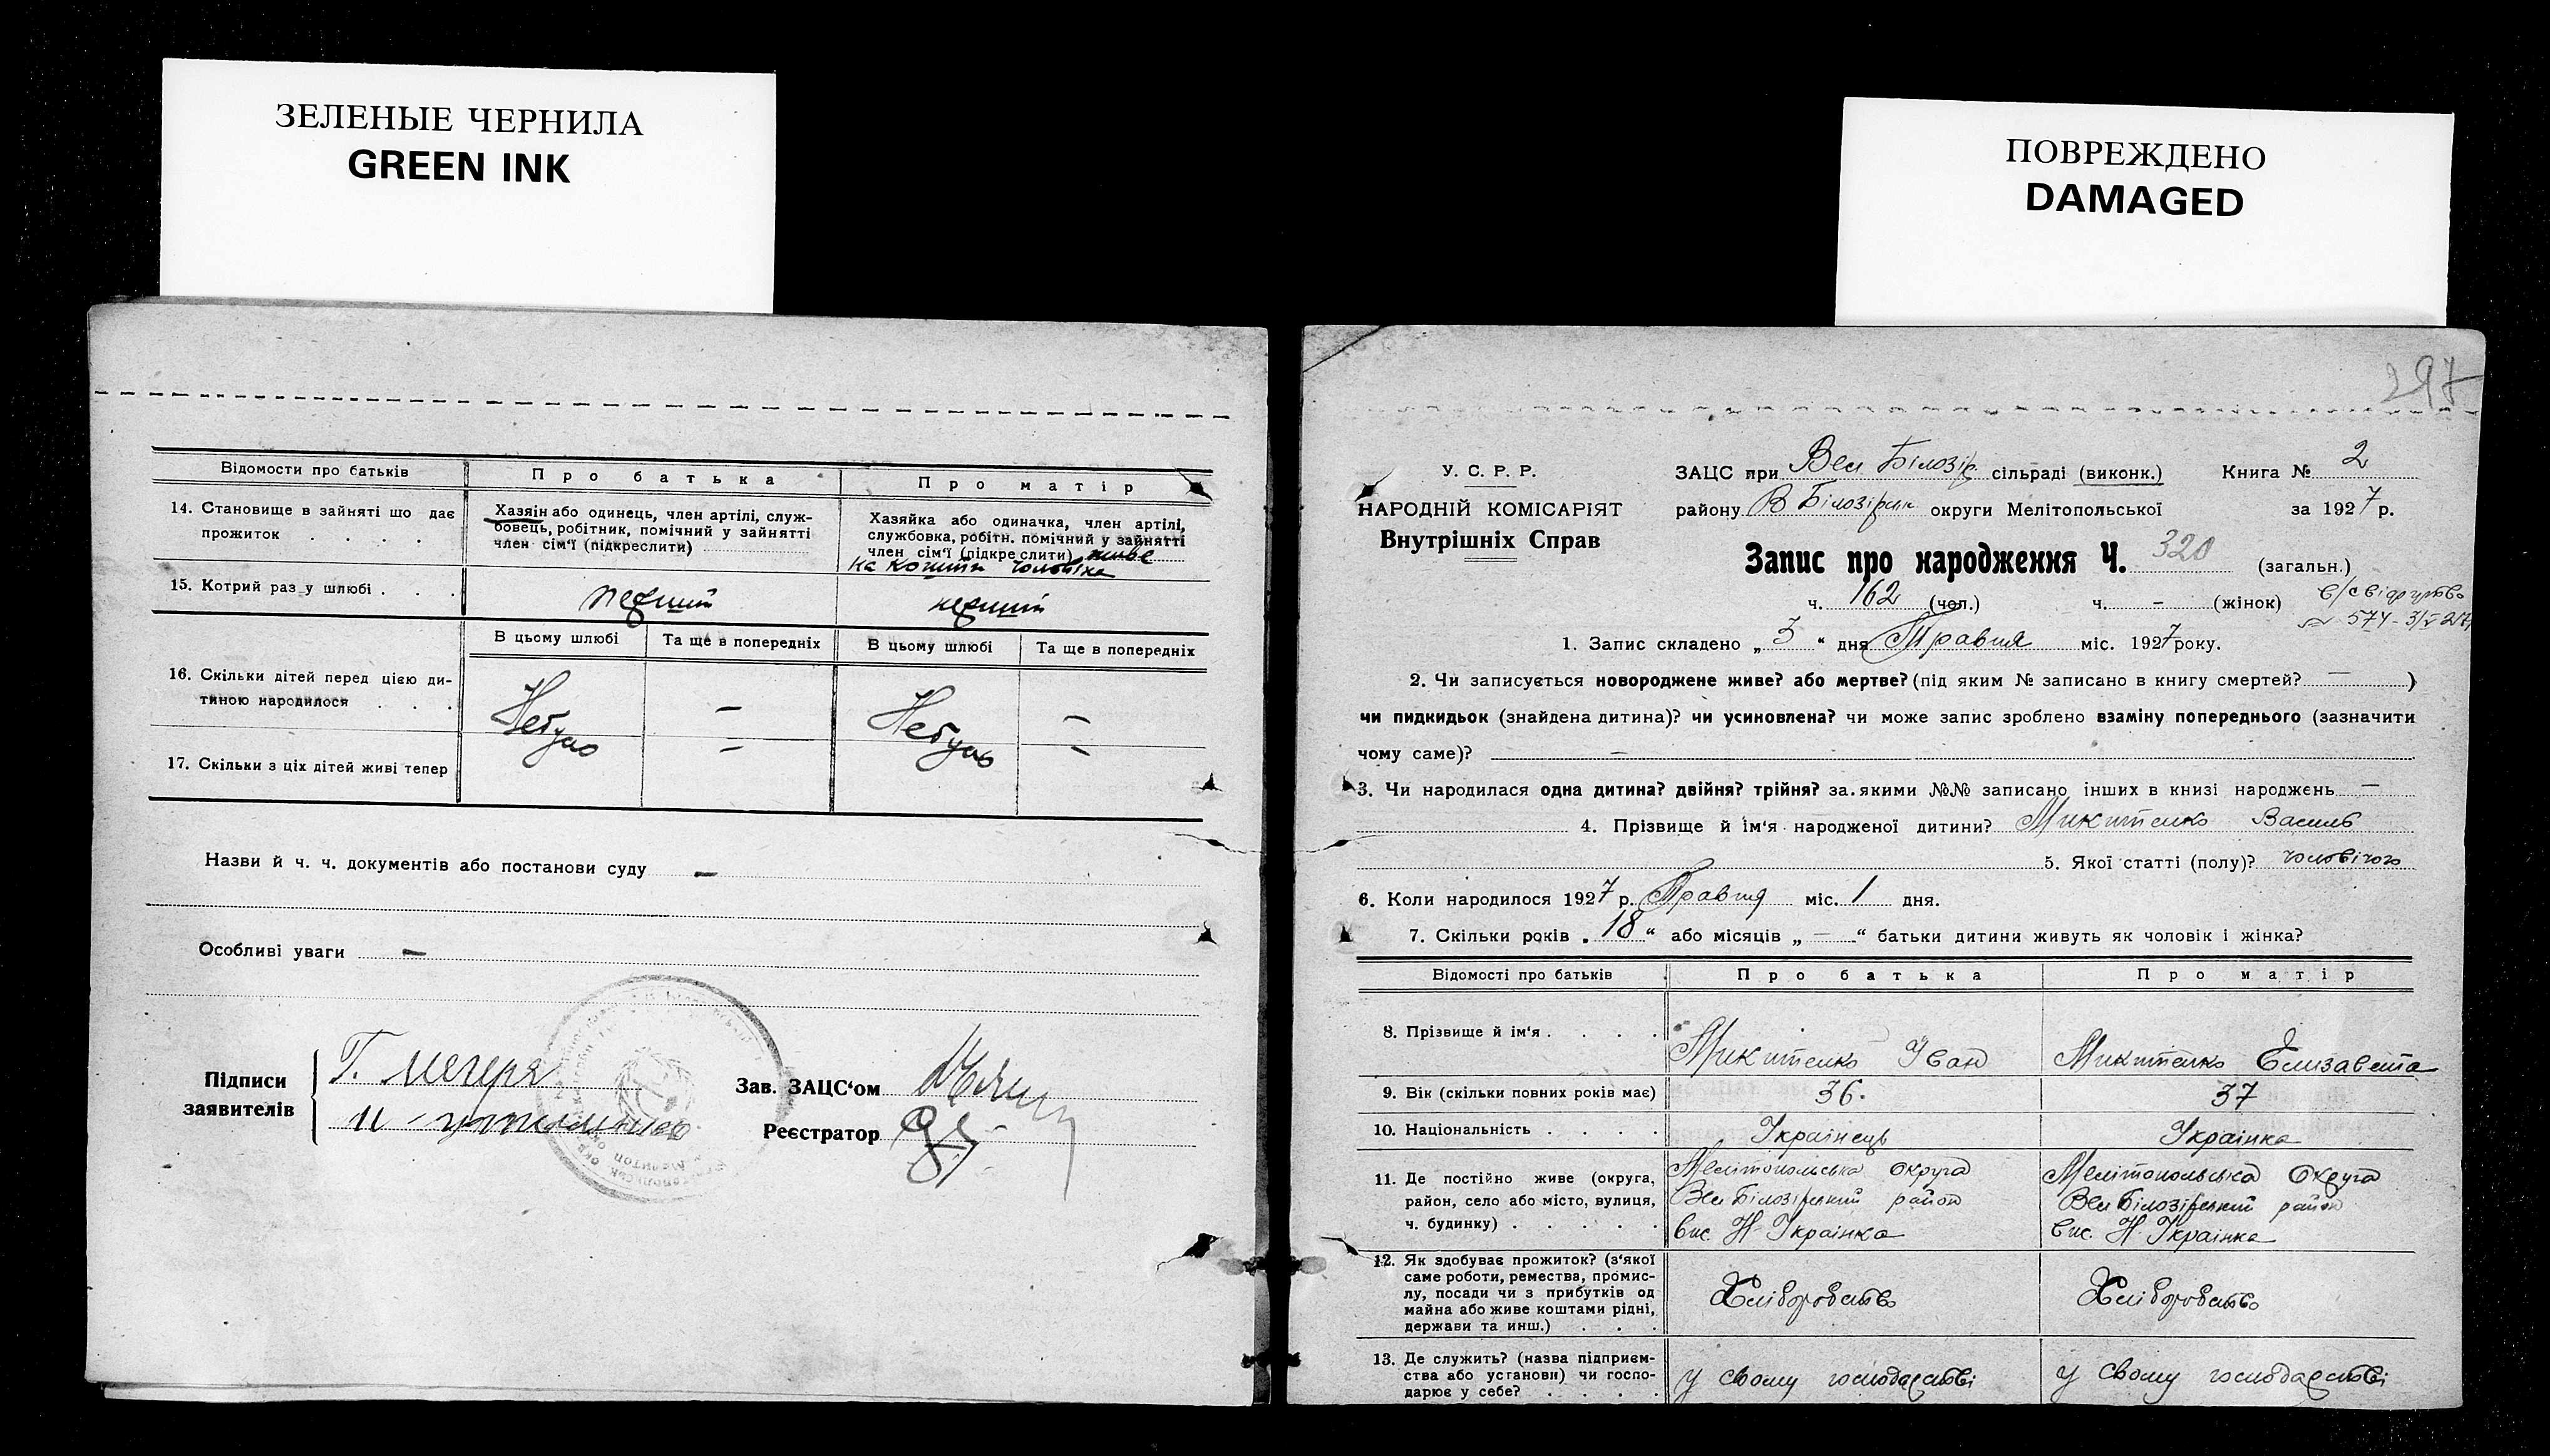 ЗЕЛЕНЫЕ ЧЕРНИЛА
GREEN INK
ПОВРЕЖДЕНО
DAMAGED
Відомости про батьків
Про батька
Про матір
14. Становище в зайняті що дає прожиток . . . .
Хазяїн або одинець, член артілі, служ-
бовець, робітник, помічний у зайнятті
член сім‘ї (підкреслити)
Хазяйка або одиначка, член артілі,
службовка, робітн. помічний у зайнятті
член сім‘ї (підкреслити) живе
на кошти чоловіка
15. Котрий раз у шлюбі . . .
перший
перший
В цьому шлюбі
Та ще в попередніх
В цьому шлюбі
Та ще в попередніх
16. Скільки дітей перед цією ди-
тиною народилося . . .
Небуло
–
Небуло
–
17. Скільки з ціх дітей живі тепер
–
–
Назви й ч. ч. документів або постанови суду –
Особливі уваги –
Підписи
заявителів
Г.
Зав. ЗАЦС‘ом
Реєстратор
297
У. С. Р. Р.
НАРОДНІЙ КОМІСАРІЯТ
Внутрішніх Справ
ЗАЦС при Вел Білозір. сільраді (виконк.) Книга № 2
району В Білозірськ округи Мелітопольської за 1927 р.
Запис про народження Ч. 320 (загальн.)
ч. 162 (чол.) ч. – (жінок)
574 - 3/V-27
1. Запис складено „ 3 “ дня Травня міс. 1927 року.
2. Чи записується новороджене живе? або мертве? (під яким № записано в книгу смертей? — )
чи пидкидьок (знайдена дитина)? чи усиновлена? чи може запис зроблено взаміну попереднього (зазначити
чому саме)? –
3. Чи народилася одна дитина? двійня? трійня? за якими №№ записано інших в книзі народжень –
4. Прізвище й ім‘я народженої дитини? Микитенко Василь
5. Якої статті (полу)? чоловічого
6. Коли народилося 1927 р. Травня міс. 1 дня.
7. Скільки років „ 18 “ або місяців „ — “ батьки дитини живуть як чоловік і жінка?
Відомості про батьків
Про батька
Про матір
8. Прізвище й ім‘я . . . .
Микитенко Іван
Микитенко Елизавета
9. Вік (скільки повних років має)
36.
37
10. Національність . . . .
Українець
Українка
11. Де постійно живе (округа,
район, село або місто, вулиця,
ч. будинку) . . . . .
Мелітопольська округа
Вел Білозірський район
вис. Н Українка
Мелітопольська Округа
Вел Білозірський район
вис. Н Українка
12. Як здобуває прожиток? (з‘якої
саме роботи, ремества, промис-
лу, посади чи з прибутків од
майна або живе коштами рідні,
держави та инш.) . . .
Хліборобство
Хліборобство
13. Де служить? (назва підприєм-
ства або установи) чи госпо-
дарює у себе? . . . .
у свому господарстві
у свому господарстві